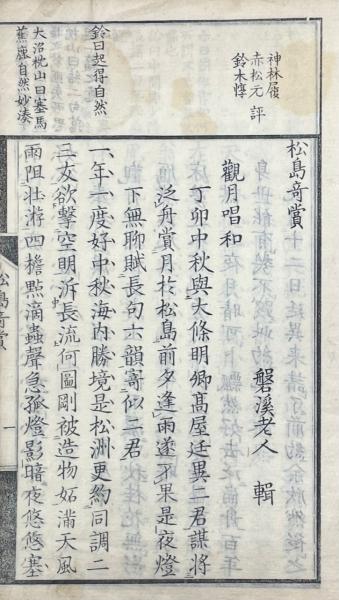 神林履
赤松元 評
鈴木惇
鈴曰起得自然
大沼枕山曰塞馬
蕉鹿自然妙湊
松島奇賞
磐溪老人 輯
觀月唱和
丁卯中秋與大條明卿髙屋廷異二君謀將
泛舟賞月於松島前夕逢雨遂不果是夜燈
下無聊賦長句六韻寄似二君
一年一度好中秋海内勝境是松洲更約同調二
三友欲擊空明泝長流何圖剛被造物妬滿天風
雨阻壯游四檐點滴蟲聲急孤燈影暗夜悠悠塞
松島奇賞
一